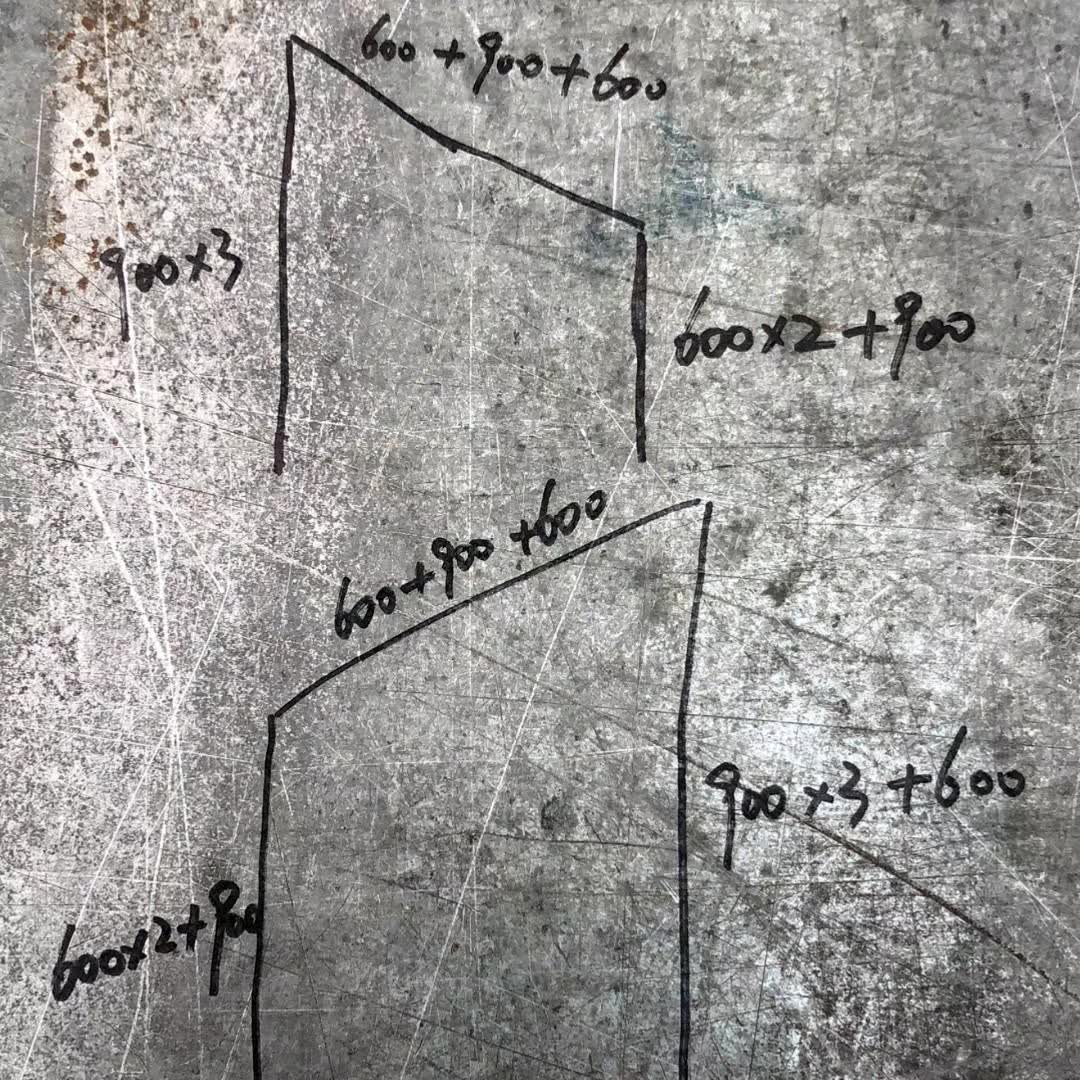 600+900+600
900×3
600×2+900
600+900+600
900×3+600
600×2+900